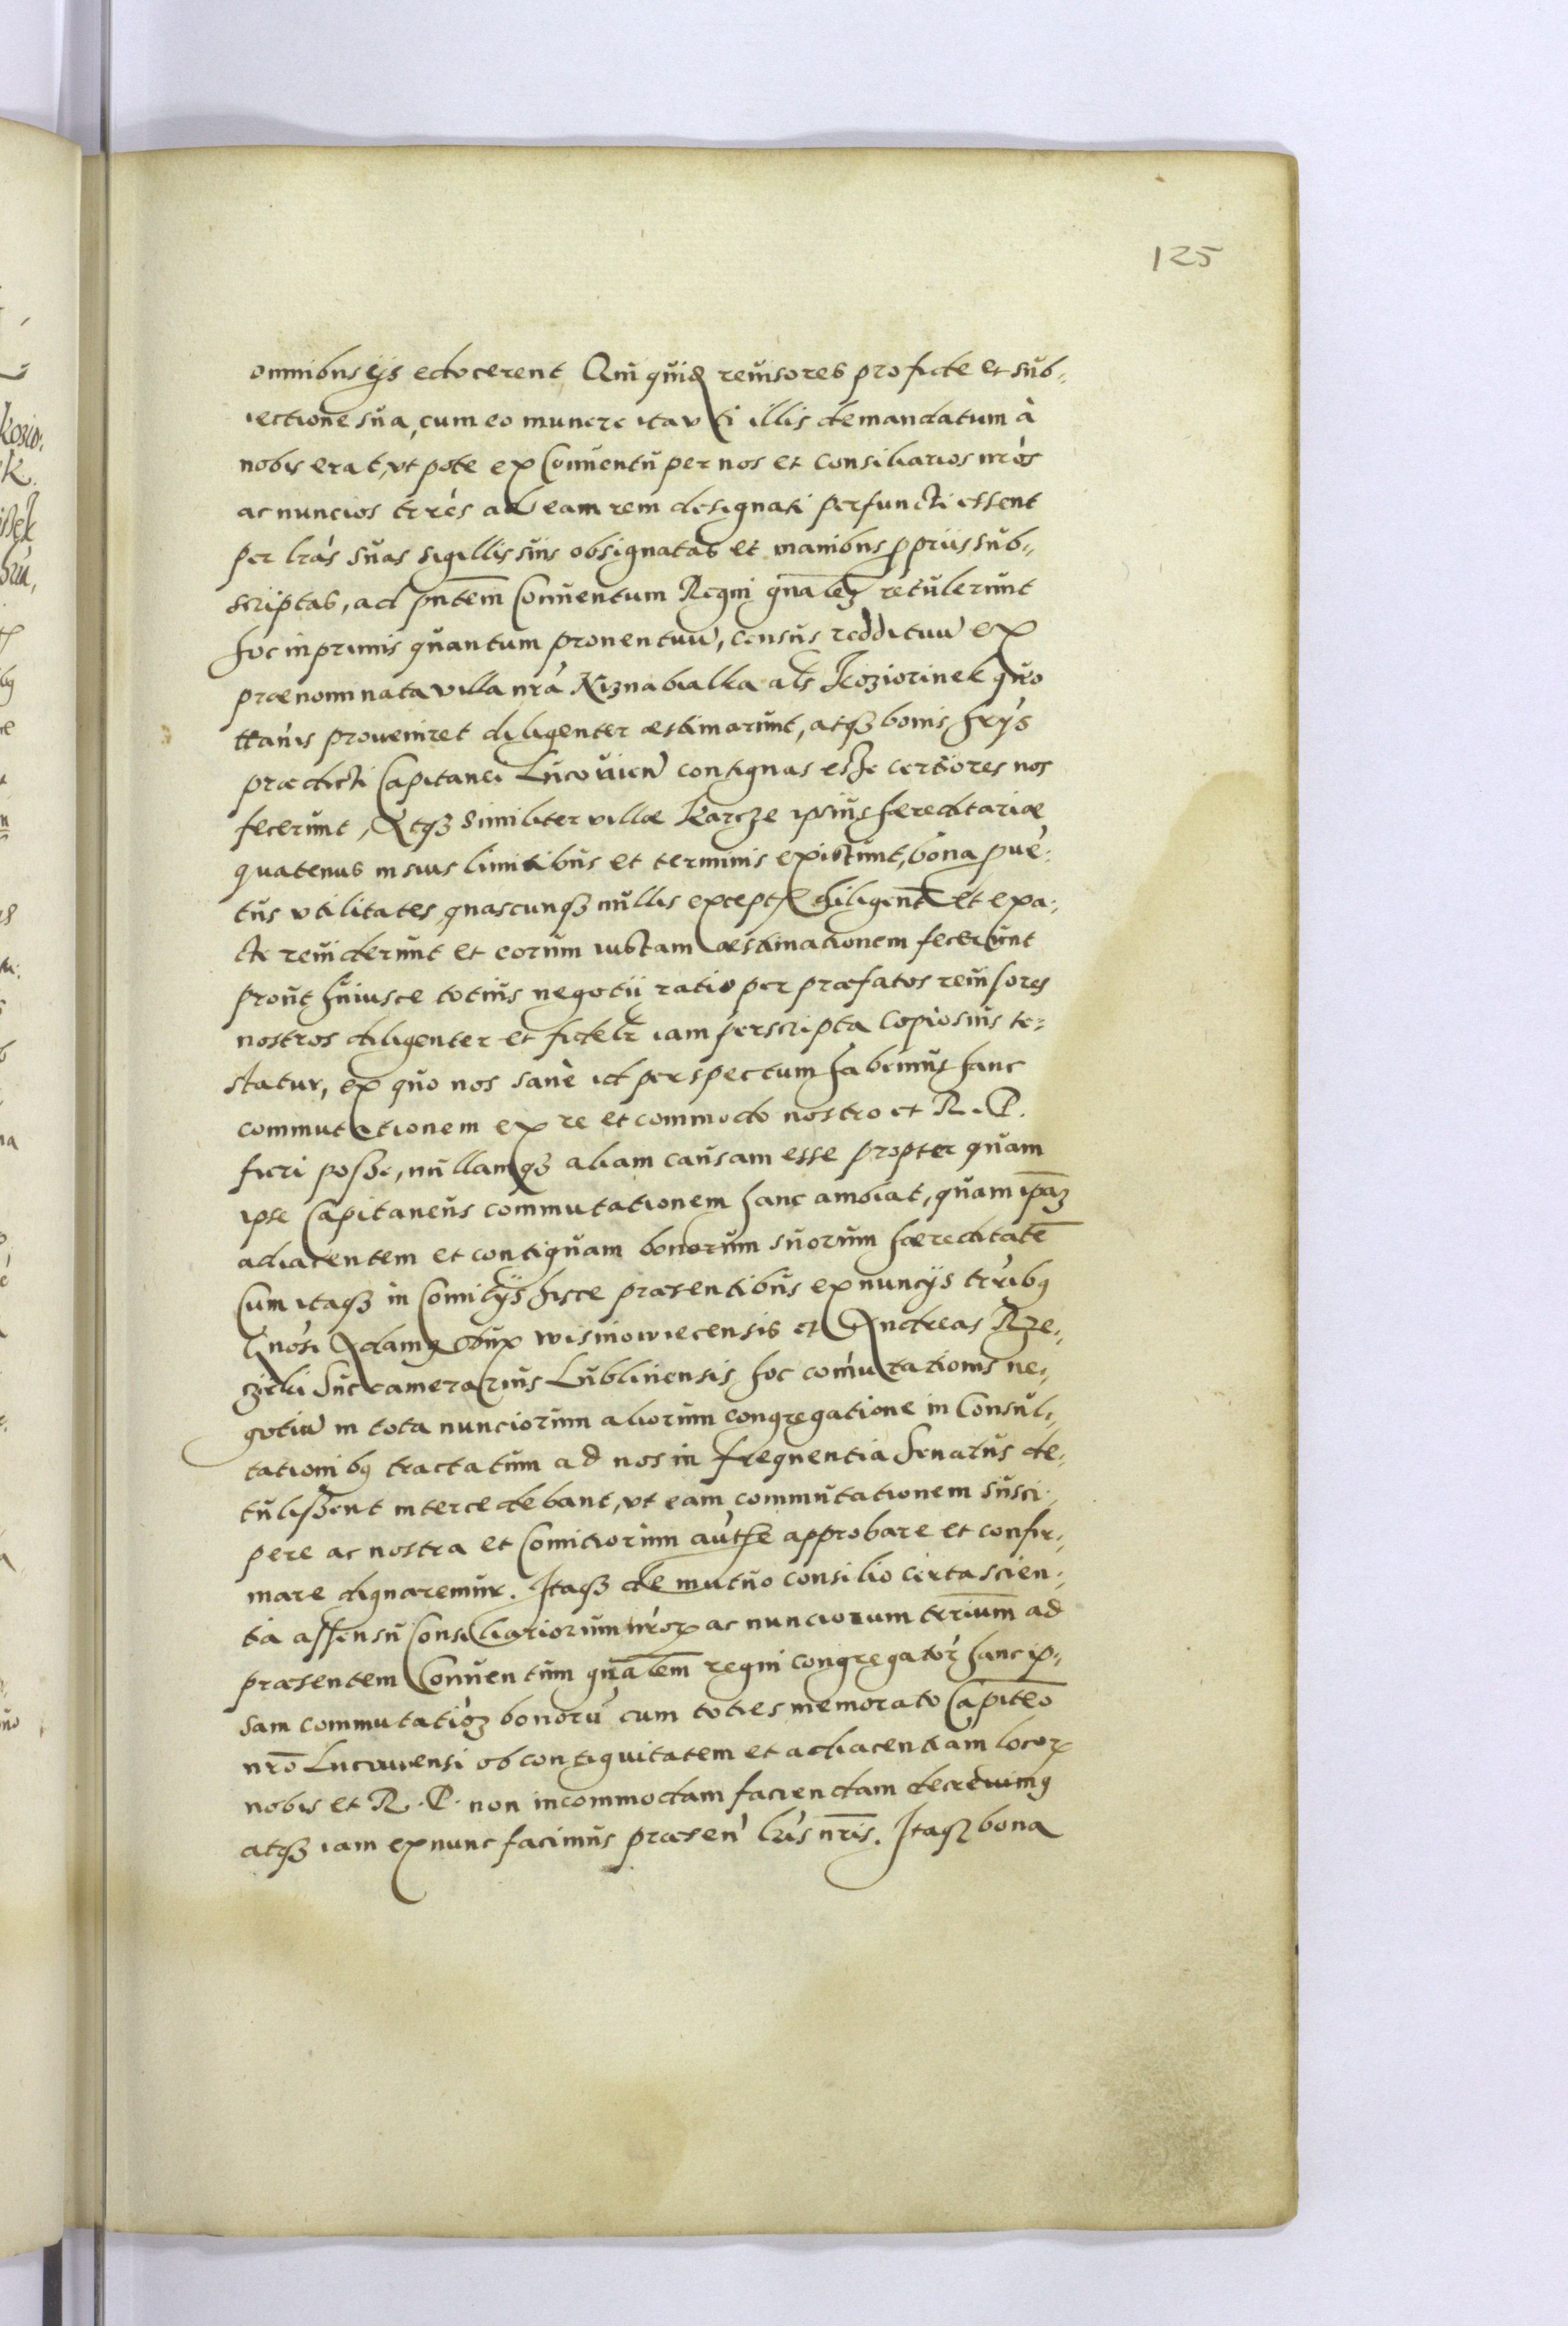 125
omnibus ijs edocerent Qui quid reuisores pro fide et sub-
iectione sua, cum eo munere ita vti illis demandatum à
nobis erat, vt pote ex Conuentu per nos et consiliarios nros
ac nuncios trres ad eam rem designati perfuncti essent
per lras suas sigillis suis obsignatas et manibus ppriis sub-
scriptas, ad pntem Conuentum Regni gnalem retulerunt
hoc inprimis quantum prouentuu, census reddituu ex
praenominata villa nra Niznabialka als Koziorinek quo
ttanis proueniret diligenter aestimarunt, atq3 bonis hrijs
praedicti Capitanei Lucouien contiguas esse certiores nos
fecerunt, Atq3 similiter villae Karcze ipsius haereditariae
quatenus in suis limitibus et terminis existunt, bona prue-
tus vtilitates quascunq3 nullis except diligent et exa-
cte reuiderunt et eorum iustam aestimationem fecerunt
prout huiusce totius negotii ratio per praefatos reuisores
nostros diligenter et fidelr iam perscripta copiosius te-
statur, ex quo nos sanè id perspectum habemus hanc
commutationem ex re et commodo nostro et R. P.
fieri posse, nullamq3 aliam causam esse propter quam
ipse Capitaneus commutationem hanc ambiat, quam ipam
adiacentem et contiguam bonorum suorum haereditatē
Cum itaq3 in Comitijs hisce praesentibus ex nuncijs trribq
Gnosi Adamq dux wisniowiecensis et Andreas Rze-
zicki Succamerarius Lublinensis hoc comutationis ne-
gotiu in tota nunciorum aliorum congregatione in Consul-
tationibq tractatum ad nos in frequentia Senatus de-
tulissent intercedebant, vt eam commutationem susci-
pere ac nostra et Comitiorum authe approbare et confir-
mare dignaremur. Itaq3 de mutuo consilio certa scien-
tia assensu Consiliariorum nror ac nunciorum trrium ad
praesentem Conuentum gnalem regni congregator hanc ip-
sam commutatiom bonoru cum toties memorato Capiteo
nro Lucouiensi ob contiguitatem et adiacentiam locor
nobis et R. P. non incommodam faciendam decreuimq
atq3 iam ex nunc facimus praesen lris nris. Itaq3 bona